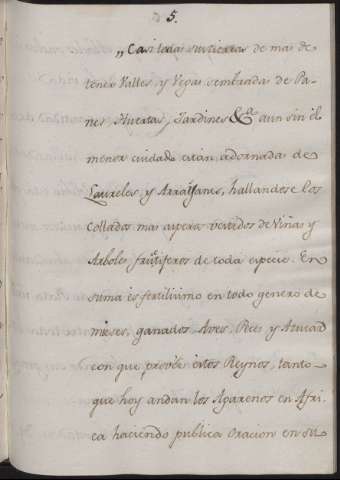 5.
„Casi todas sus tierras de mas de
tener Valles, y Vegas sembradas de Pa-
nes, Huertas, Jardines &ª. aun sin el
menor cuidado estàn adornadas de
Laureles, y Arraÿanes, hallandose los
collados mas asperos vestidos de Viñas y
Arboles frutiferos de toda especie. En
suma ès fertilisimo en todo genero de
mieses, ganados, Aves, Pezes y Azucar
con que proveè èstos Reynos, tanto
que hoy andan los Agarenos en Afri-
ca haciendo publica Oracion en su